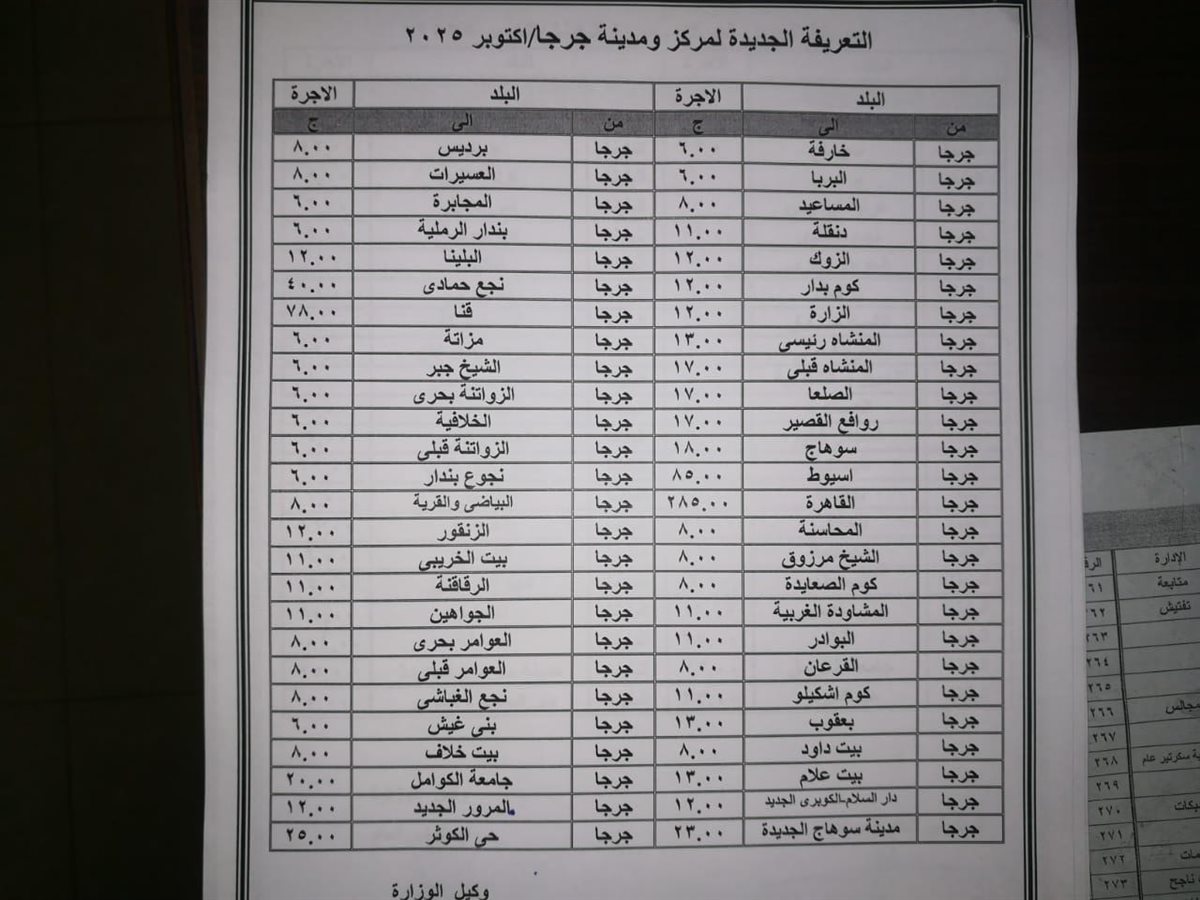 التعريفة الجديدة لمركز ومدينة جرجا/اكتوبر ٢٠٢٥
البلد الاجرة البلد الاجرة
من الى ج من الى ج
جرجا خارفة ٦.٠٠ جرجا برديس ٨.٠٠
جرجا البربا ٦.٠٠ جرجا العسيرات ٨.٠٠
جرجا المساعيد ٨.٠٠ جرجا المجابرة ٦.٠٠
جرجا دنقلة ١١.٠٠ جرجا بندار الرملية ٦.٠٠
جرجا الزوك ١٢.٠٠ جرجا البلينا ١٢.٠٠
جرجا كوم بدار ١٢.٠٠ جرجا نجع حمادى ٤٠.٠٠
جرجا الزارة ١٢.٠٠ جرجا قنا ٧٨.٠٠
جرجا المنشاه رئيسى ١٣.٠٠ جرجا مزاتة ٦.٠٠
جرجا المنشاه قبلى ١٧.٠٠ جرجا الشيخ جبر ٦.٠٠
جرجا الصلعا ١٧.٠٠ جرجا الزواتنة بحرى ٦.٠٠
جرجا روافع القصير ١٧.٠٠ جرجا الخلافية ٦.٠٠
جرجا سوهاج ١٨.٠٠ جرجا الزواتنة قبلى ٦.٠٠
جرجا اسيوط ٨٥.٠٠ جرجا نجوع بندار ٦.٠٠
جرجا القاهرة ٢٨٥.٠٠ جرجا البياضى والقرية ٨.٠٠
جرجا المحاسنة ٨.٠٠ جرجا الزنقور ١٢.٠٠
جرجا الشيخ مرزوق ٨.٠٠ جرجا بيت الخريبى ١١.٠٠
جرجا كوم الصعايدة ٨.٠٠ جرجا الرقاقنة ١١.٠٠
جرجا المشاودة الغربية ١١.٠٠ جرجا الجواهين ١١.٠٠
جرجا البوادر ١١.٠٠ جرجا العوامر بحرى ٨.٠٠
جرجا القرعان ٨.٠٠ جرجا العوامر قبلى ٨.٠٠
جرجا كوم اشكيلو ١١.٠٠ جرجا نجع الغباشى ٨.٠٠
جرجا يعقوب ١٣.٠٠ جرجا بنى غيش ٦.٠٠
جرجا بيت داود ٨.٠٠ جرجا بيت خلاف ٨.٠٠
جرجا بيت علام ١٣.٠٠ جرجا جامعة الكوامل ٢٠.٠٠
جرجا دار السلام-الكوبرى الجديد ١٢.٠٠ جرجا المرور الجديد ١٢.٠٠
جرجا مدينة سوهاج الجديدة ٢٣.٠٠ جرجا حى الكوثر ٢٥.٠٠
وكيل الوزارة
الإدارة
متابعة ٢٦١
تفتيش ٢٦٢
٢٦٣
٢٦٤
٢٦٥
٢٦٦
٢٦٧
سكرتير عام ٢٦٨
٢٦٩
٢٧٠
٢٧١
٢٧٢
ناجح ٢٧٣